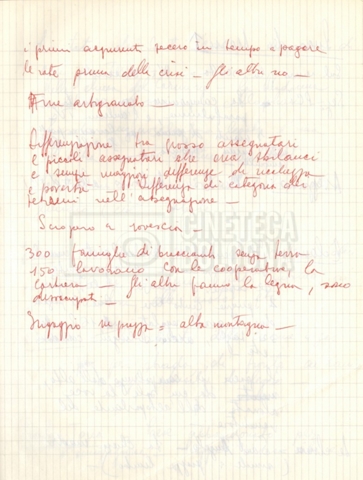 i primi acquirenti fecero in tempo a pagare
le rate prima della crisi _ gli altri no _
Fine artigianato _
Differenziazione tra grossi assegnatari
e piccoli assegnatari che ora sbilanci
e sempre maggiori differenze di ricchezza
e povertà differenza di categoria dei
terreni nell'assegnazione _
Sciopero a rovescio _
CINETECA
300 famiglie di braccianti senza terra
150 lavorano con le cooperative, la
_ gli altri fanno la legna, sono
disoccupati _
Ingaggio in piazza = alla montagna _